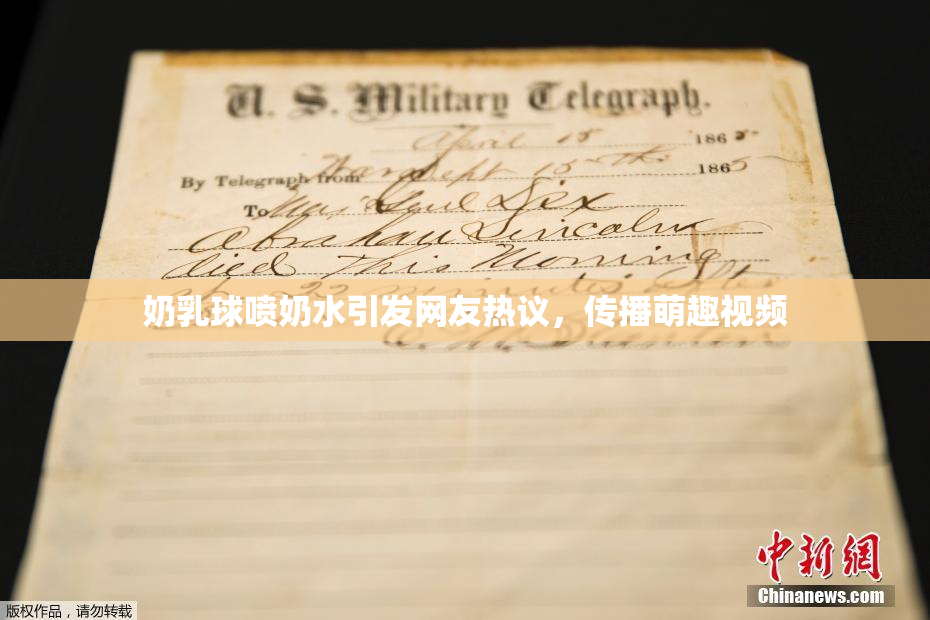 U. S. Military Telegraph.
April 15 1865
By Telegraph from War Dept 15th 1865
To Maj Genl Dix
Abraham Lincoln
died This Morning
at 22 minutes after
奶乳球喷奶水引发网友热议，传播萌趣视频
E. M. Stanton
中新网
Chinanews.com
版权作品，请勿转载